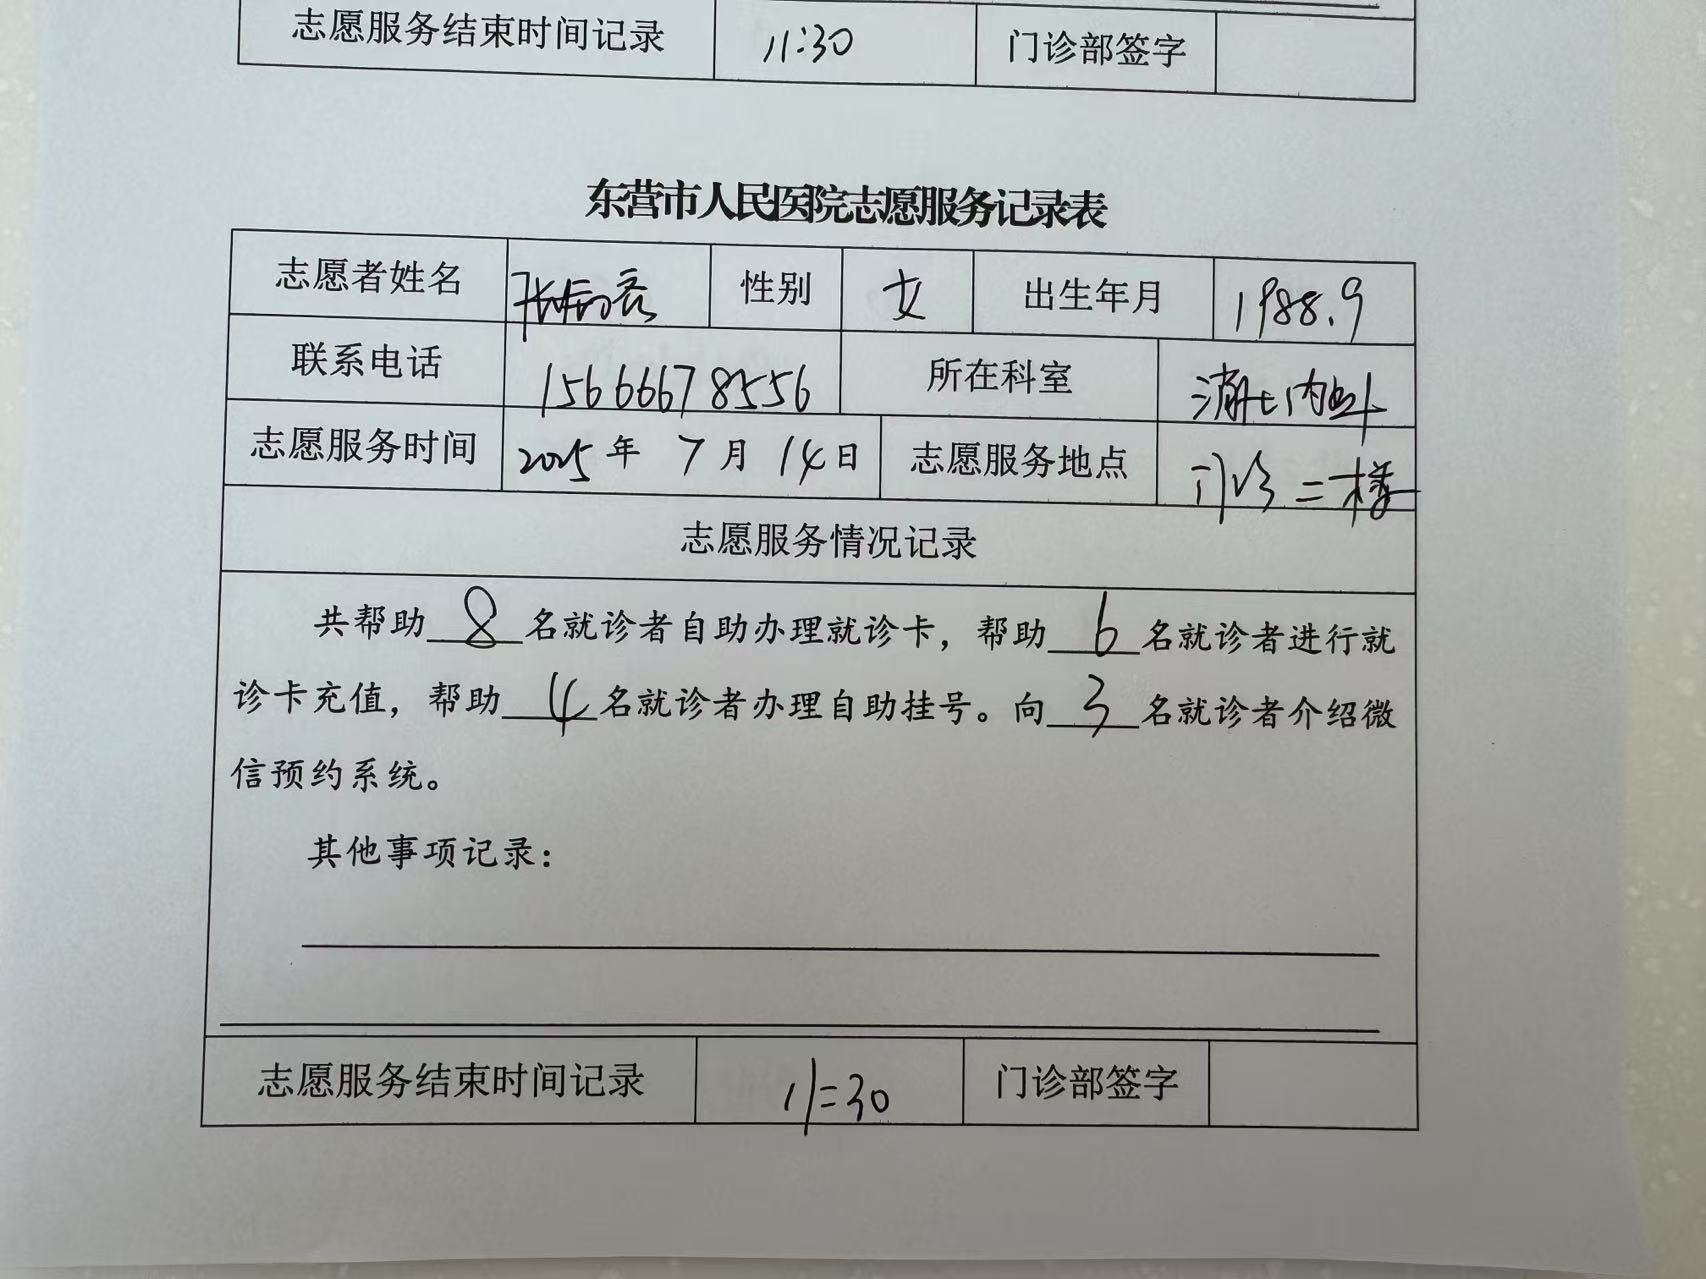 志愿服务结束时间记录 11:30 门诊部签字
东营市人民医院志愿服务记录表
志愿者姓名 张 性别 女 出生年月 1988.9
联系电话 15666678556 所在科室 消化内科
志愿服务时间 2025年 7月 14日 志愿服务地点 门诊二楼
志愿服务情况记录
共帮助 8 名就诊者自助办理就诊卡，帮助 6 名就诊者进行就
诊卡充值，帮助 4 名就诊者办理自助挂号。向 3 名就诊者介绍微
信预约系统。
其他事项记录：
志愿服务结束时间记录 11:30 门诊部签字